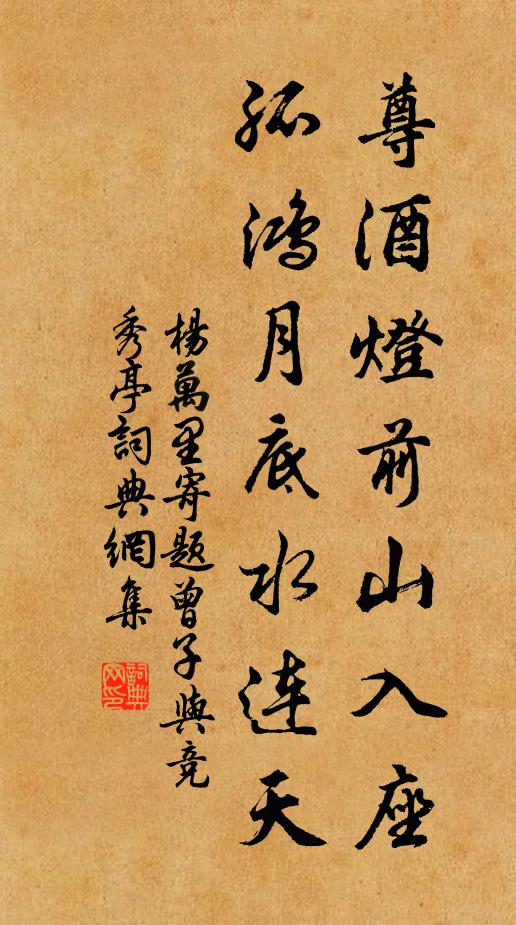 尊酒燈前山入座
孤鴻月底水連天
楊萬里寄題曾子與競
秀亭詞典網集
詞典网印